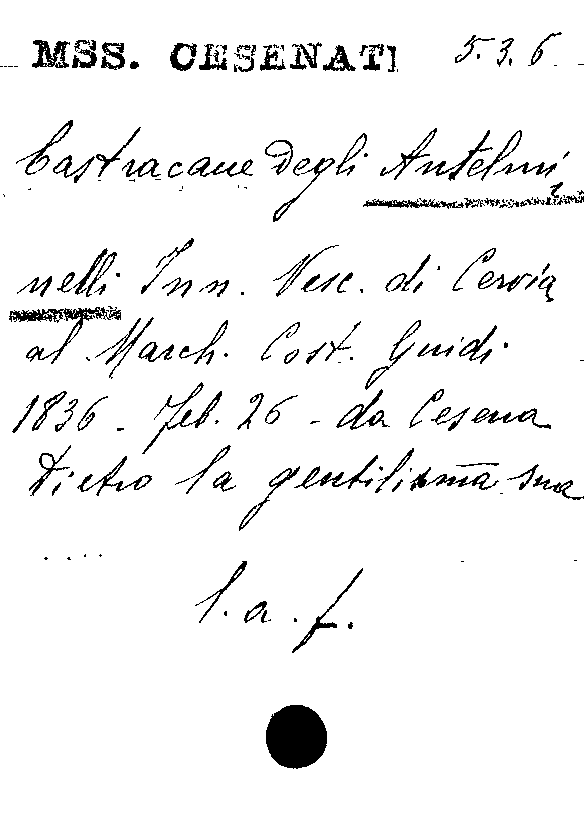 MSS. CESENATI 5.3.6
Castracane degli Antelmi
nelli Inn. Vesc. di Cervia
al March. Cost. Guidi
1836 - Feb. 26 - da Cesena
Dietro la gentilissma sua
....
l. a. f.